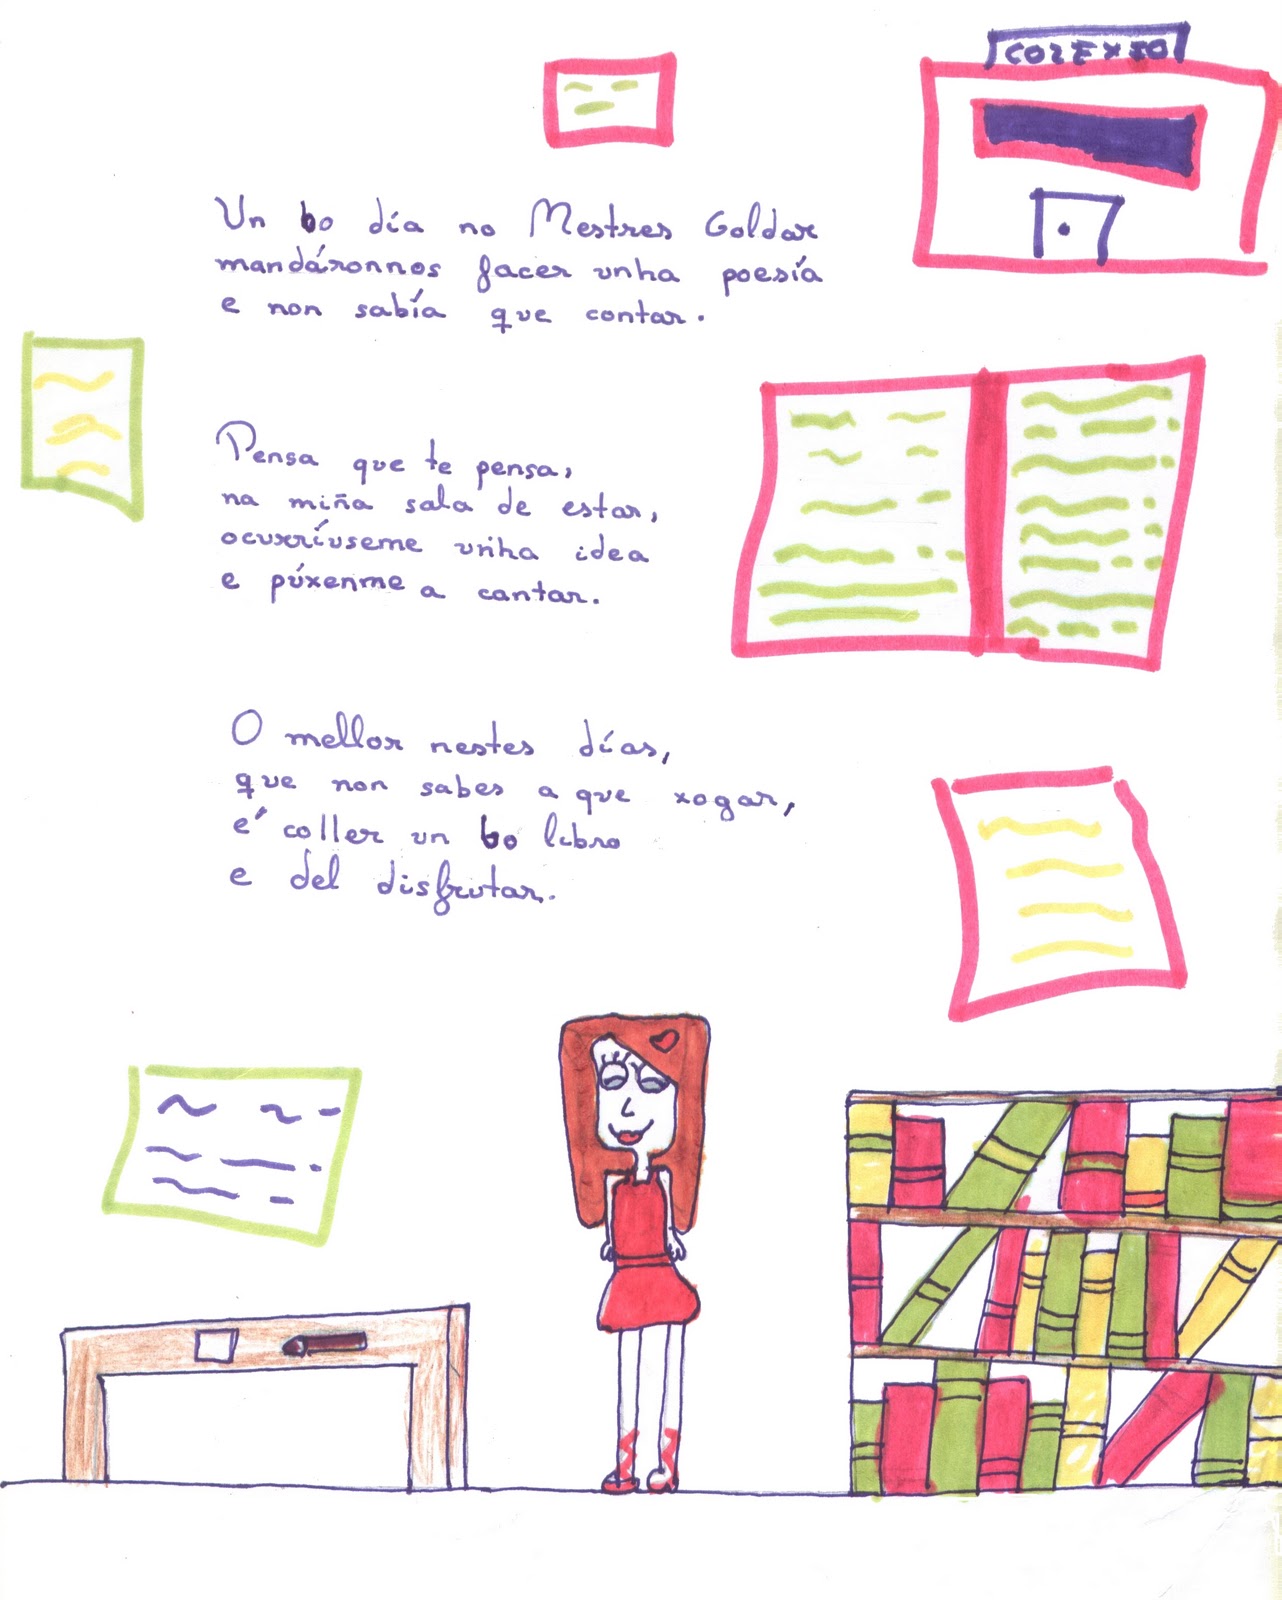 COLEXIO
Un bo día no Mestres Goldar
mandáronnos facer unha poesía
e non sabía que contar.
Pensa que te pensa,
na miña sala de estar,
ocurríuseme unha idea
e púxenme a cantar.
O mellor nestes días,
que non sabes a que xogar,
é coller un bo libro
e del disfrutar.